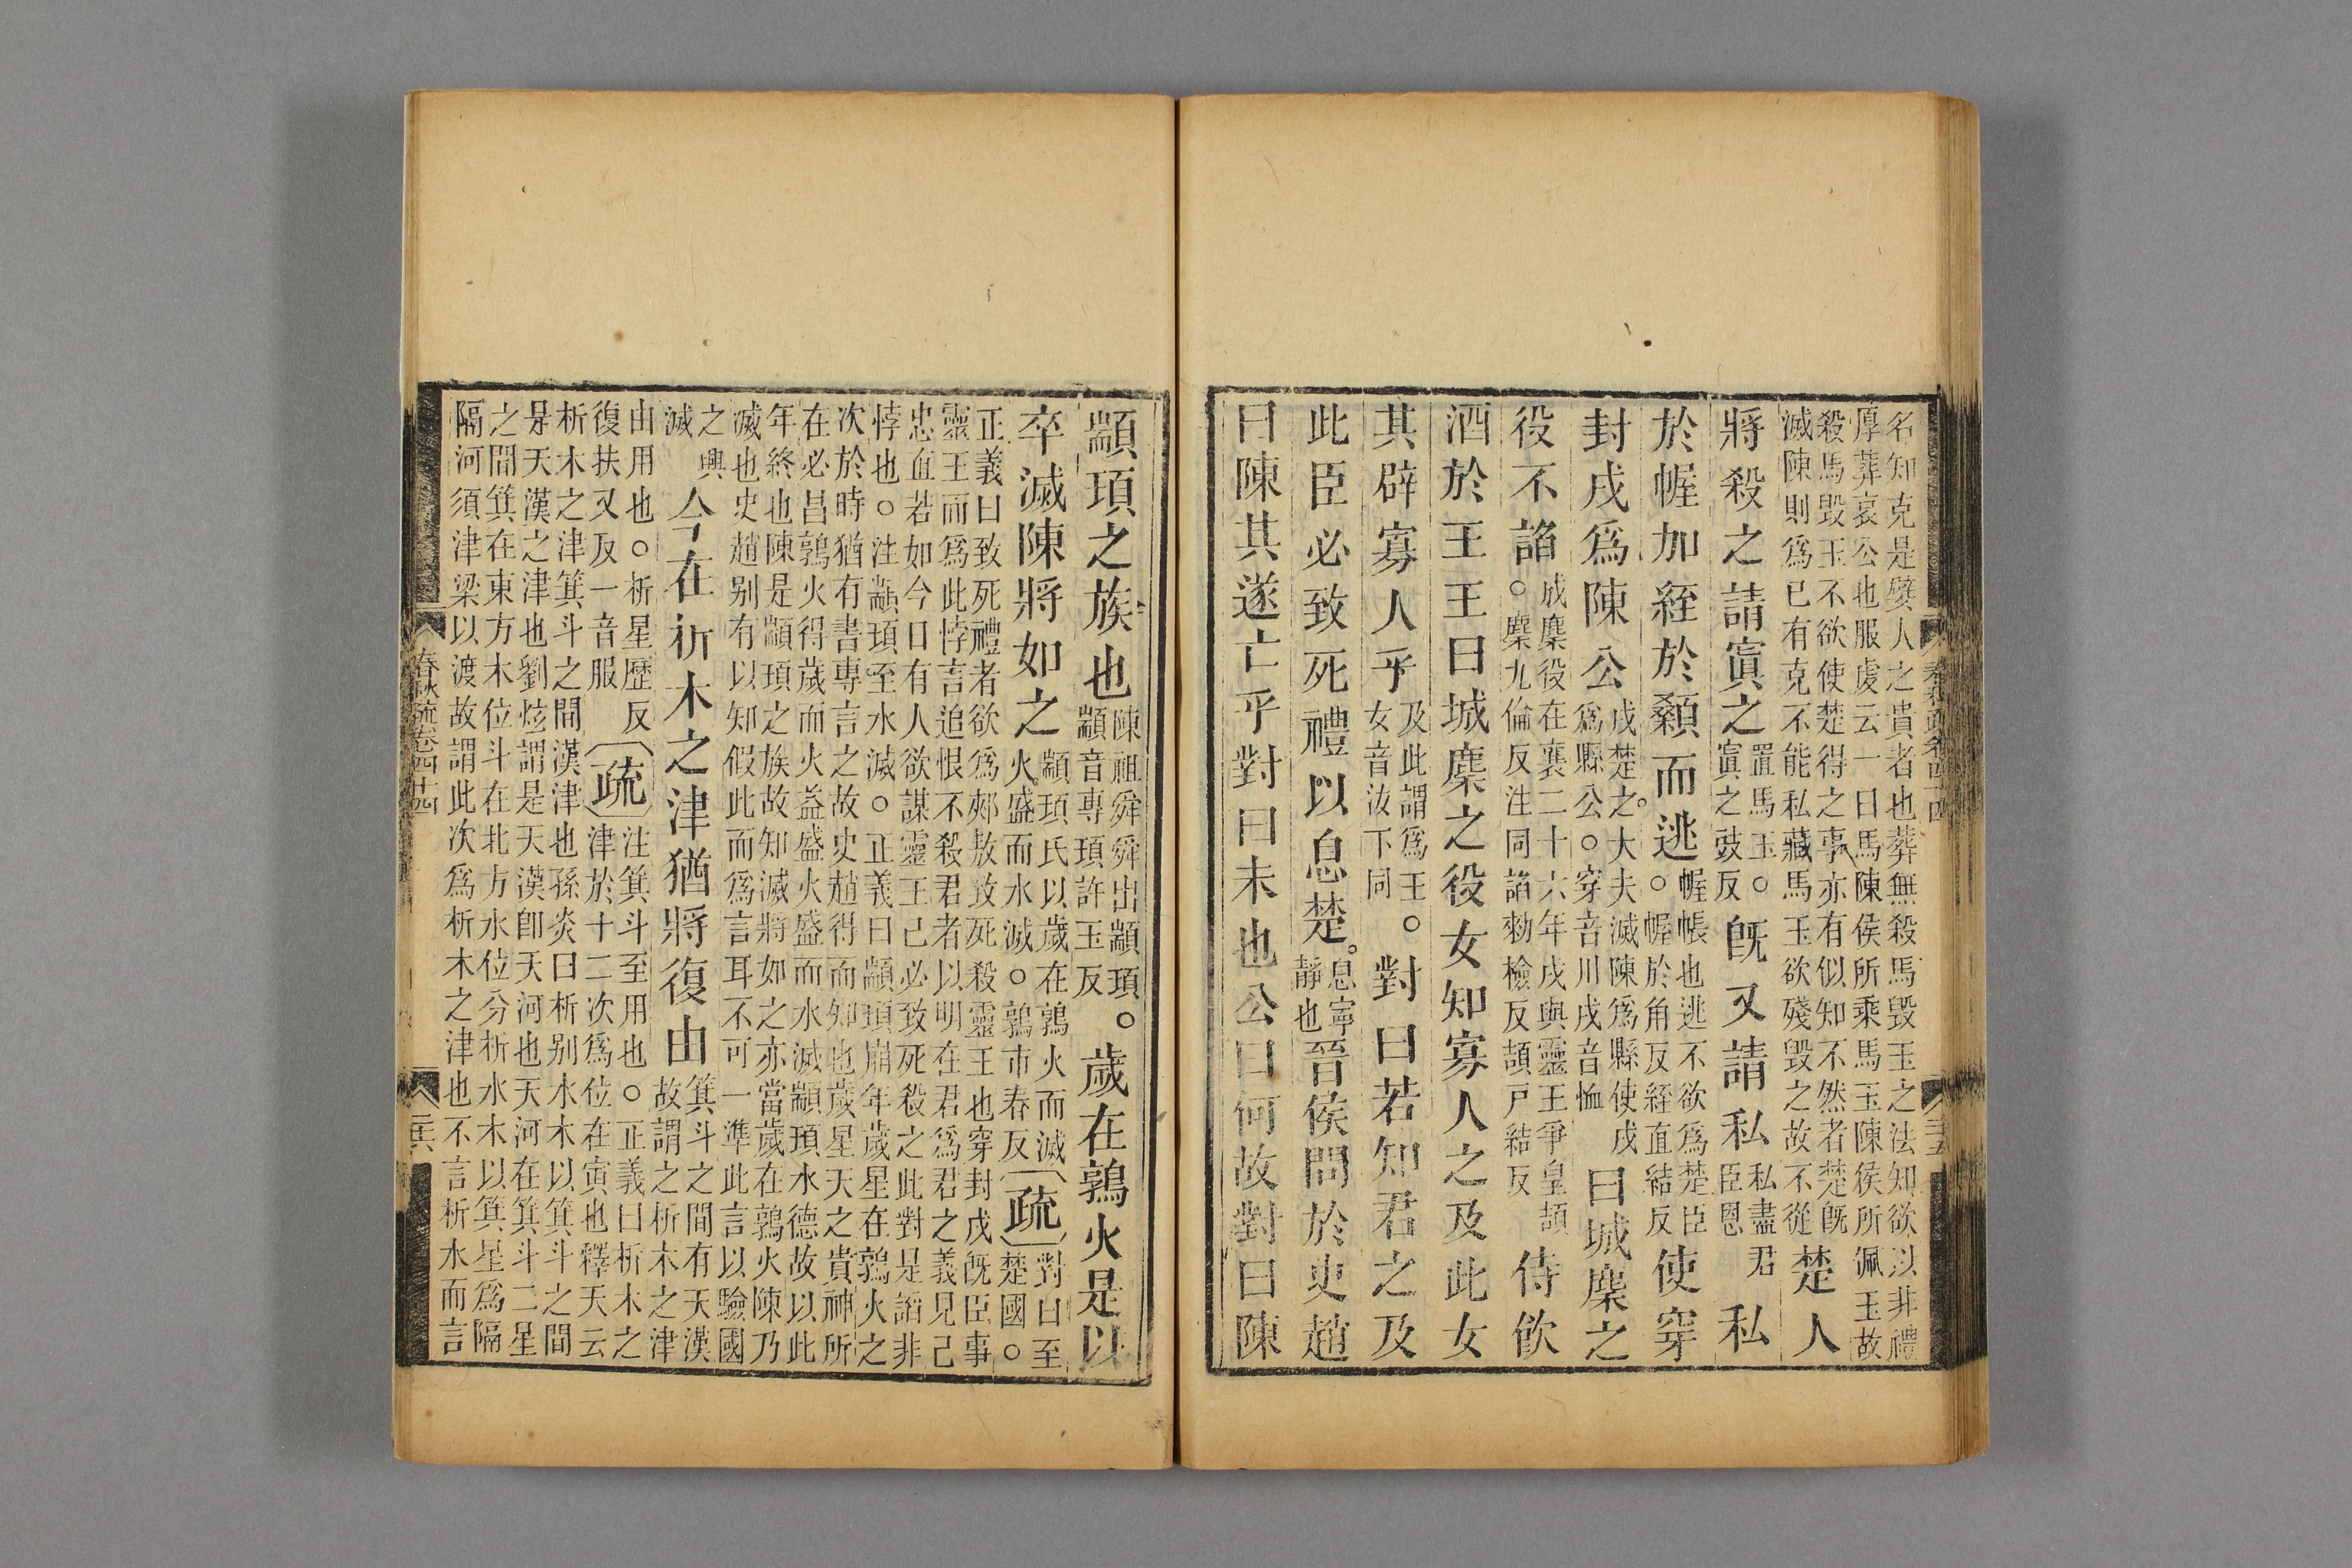 名知克是嬖人之貴者也葬無殺馬毀玉之法知欲以非禮
厚葬哀公也服虔云一曰馬陳侯所乘馬玉陳侯所佩玉故
殺馬毀玉不欲使楚得之事亦有似知不然者楚既
滅陳則爲已有克不能私藏馬玉欲殘毀之故不從
楚人
將殺之請寘之
置馬玉。
寘之豉反
既又請私
私盡君
臣恩
私
於幄加絰於顙而逃
幄帳也逃不欲爲楚臣
。幄於角反絰直結反
使穿
封戌爲陳公
戌楚之大夫滅陳爲縣使戌
爲縣公。穿音川戌音恤
曰城麇之
役不諂
成麇役在襄二十六年戌與靈王爭皇頡
。麇九倫反注同諂勑檢反頡戸結反
侍飲
酒於王王曰城麇之役女知寡人之及此女
其辟寡人乎
及此謂爲王。
女音汝下同
對曰若知君之及
此臣必致死禮以息楚。
息寧
靜也
晉侯問於史趙
曰陳其遂亡乎對曰未也公曰何故對曰陳
顓頊之族也
陳祖舜舜出顓頊。
顓音專頊許玉反
歲在鶉火是以
卒滅陳將如之
顓頊氏以歲在鶉火而滅
火盛而水滅。鶉市春反
疏
對曰至
楚國。
正義曰致死禮者欲爲郟敖致死殺靈王也穿封戌既臣事
靈王而爲此悖言追恨不殺君者以明在君爲君之義見己
忠直若如今日有人欲謀靈王己必致死殺之此對是諂非
悖也。注顓頊至水滅。正義曰顓頊崩年歲星在鶉火之
次於時猶有書專言之故史趙得而知也歲星天之貴神所
在必昌鶉火得歲而火益盛火盛而水滅顓頊水德故以此
年終也陳是顓頊之族故知滅將如之亦當歲在鶉火陳乃
滅也史趙别有以知假此而爲言耳不可一準此言以驗國
之興
滅
今在析木之津猶將復由
箕斗之間有天漢
故謂之析木之津
由用也。析星歷反
復扶又反一音服
疏
注箕斗至用也。正義曰析木之
津於十二次爲位在寅也釋天云
析木之津箕斗之間漢津也孫炎曰析别水木以箕斗之間
是天漢之津也劉炫謂是天漢卽天河也天河在箕斗二星
之間箕在東方木位斗在北方水位分析水木以箕星爲隔
隔河須津梁以渡故謂此次爲析木之津也不言析水而言
春秋疏卷四十四